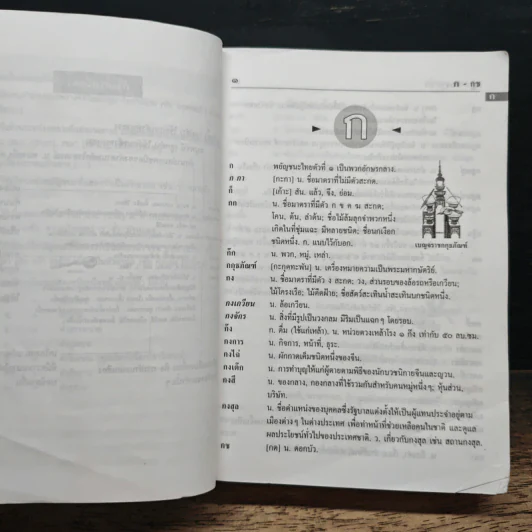 ๑
ก - กช
ก
ก
ก พยัญชนะไทยตัวที่ ๑ เป็นพวกอักษรกลาง.
ก กา [กะกา] น. ชื่อมาตราที่ไม่มีตัวสะกด.
ก็ [เก้าะ] สัน. แล้ว, จึง, ย่อม.
กก น. ชื่อมาตราที่มีตัว ก ข ค ฆ สะกด;
โคน, ต้น, ลำต้น; ชื่อไม้ล้มลุกจำพวกหนึ่ง
เกิดในที่ชุ่มแฉะ มีหลายชนิด; ชื่อนกเงือก
ชนิดหนึ่ง. ก. แนบไว้กับอก.
เบญจราชกกุธภัณฑ์
ก๊ก น. พวก, หมู่, เหล่า.
กกุธภัณฑ์ [กะกุดทะพัน] น. เครื่องหมายความเป็นพระมหากษัตริย์.
กง น. ชื่อมาตราที่มีตัว ง สะกด; วง, ส่วนรอบของล้อรถหรือเกวียน;
ไม้โครงเรือ; ไม้ดีดฝ้าย; ชื่อสัตว์สะเทินน้ำสะเทินบกชนิดหนึ่ง.
กงเกวียน น. ล้อเกวียน.
กงจักร น. สิ่งที่มีรูปเป็นวงกลม มีริมเป็นแฉกๆ โดยรอบ.
กึง ก. ดื่ม (ใช้แก่เหล้า). น. หน่วยตวงเหล้าโรง ๑ กึง เท่ากับ ๕๐ ลบ.ซม.
กงการ น. กิจการ, หน้าที่, ธุระ.
กงไฉ่ น. ผักกาดเค็มชนิดหนึ่งของจีน.
กงเต็ก น. การทำบุญให้แก่ผู้ตายตามพิธีของนักบวชนิกายจีนและญวน.
กงสี น. ของกลาง, กองกลางที่ใช้รวมกันสำหรับคนหมู่หนึ่งๆ; หุ้นส่วน,
บริษัท.
กงสุล น. ชื่อตำแหน่งของบุคคลซึ่งรัฐบาลแต่งตั้งให้เป็นผู้แทนประจำอยู่ตาม
เมืองต่างๆ ในต่างประเทศ เพื่อทำหน้าที่ช่วยเหลือคนในชาติ และดูแล
ผลประโยชน์ทั่วไปของประเทศชาติ. ว. เกี่ยวกับกงสุล เช่น สถานกงสุล.
กช [กด] น. ดอกบัว.